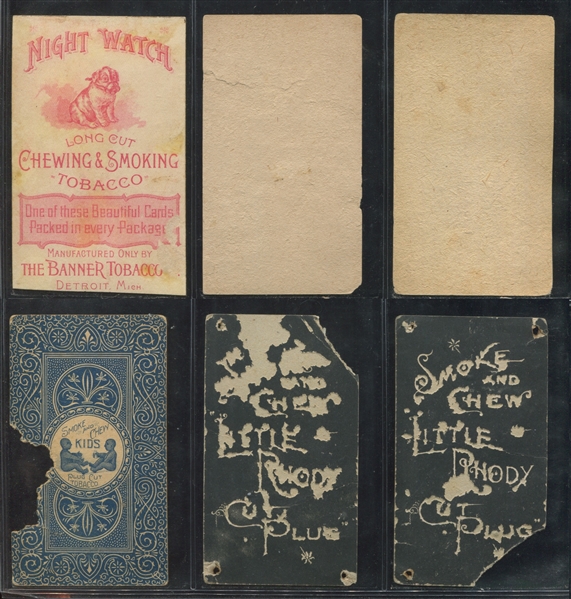 NIGHT WATCH
LONG CUT
CHEWING & SMOKING
TOBACCO
One of these Beautiful Cards
Packed in every Package
MANUFACTURED ONLY BY
THE BANNER TOBACCO
DETROIT, MICH.
SMOKE AND CHEW
KIDS
PLUG CUT
TOBACCO
AND
CHEW
LITTLE
RHODY
CUT
PLUG
SMOKE
AND
CHEW
LITTLE
RHODY
CUT
PLUG